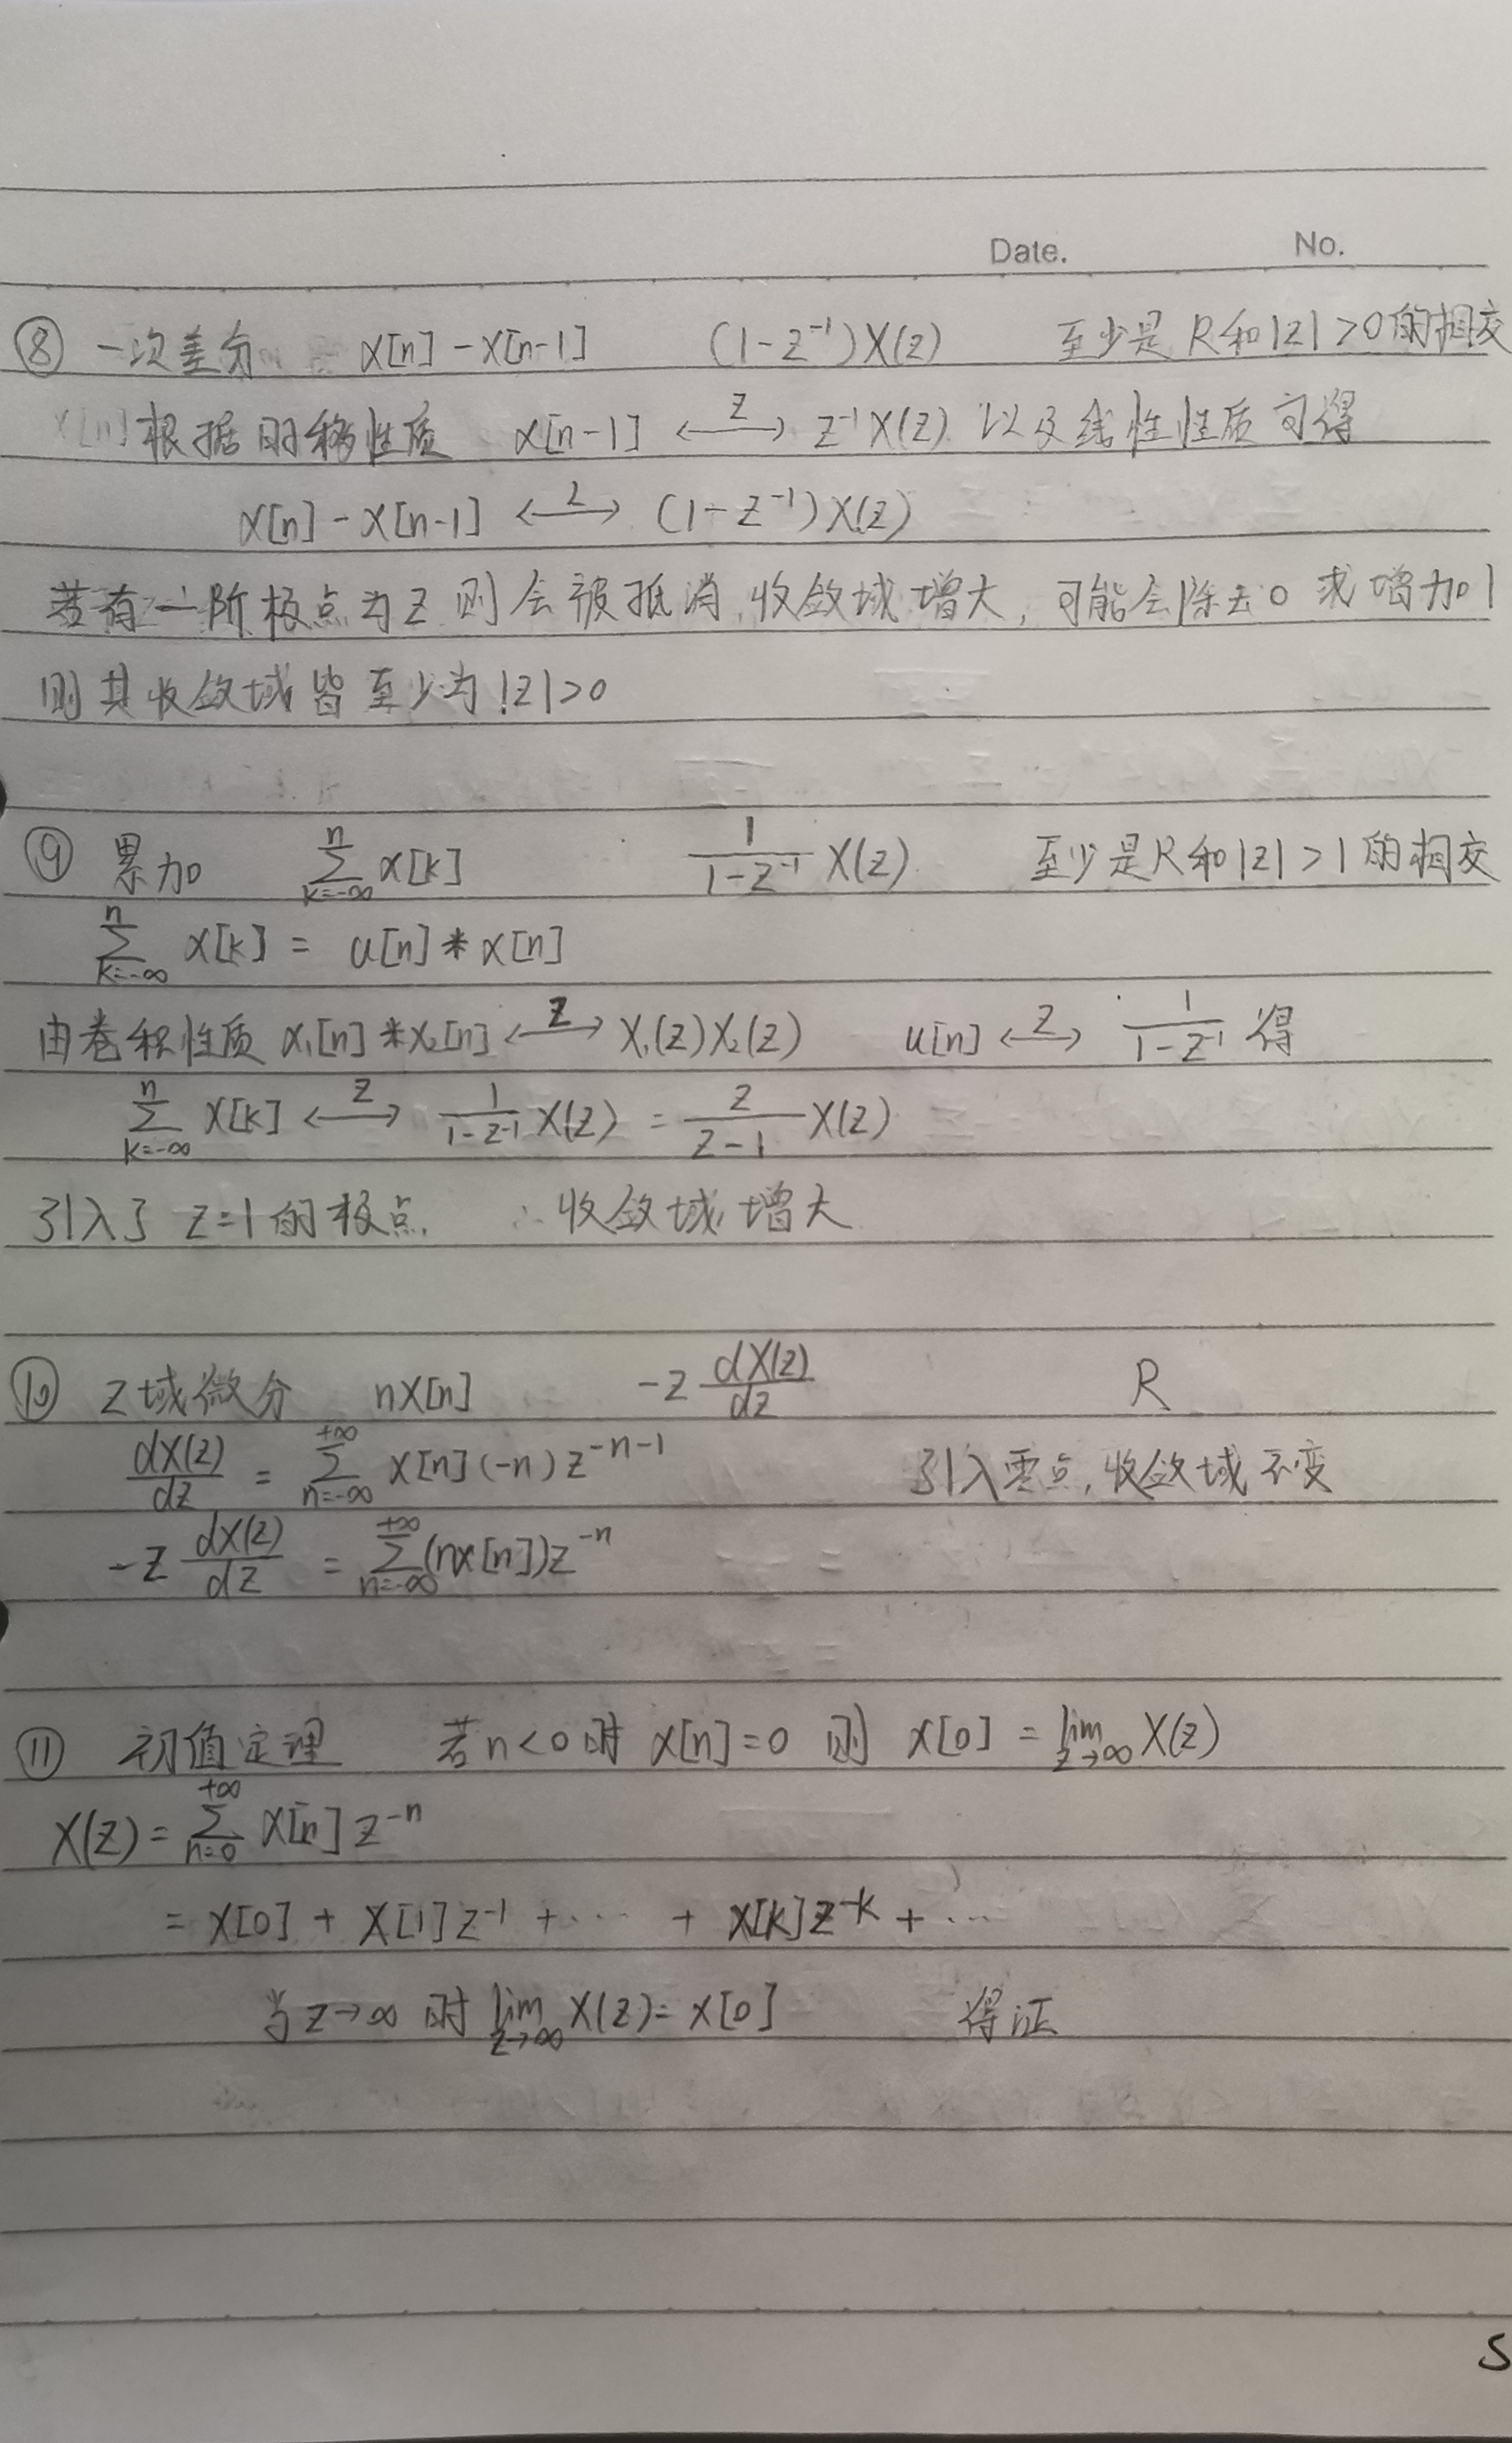 Date. No.
⑧ 一次差分 x[n]-x[n-1] (1-z⁻¹)X(z) 至少是R和|z|>0的相交
根据时移性质 x[n-1] ←Z→ z⁻¹X(z) 以及线性性质可得
x[n]-x[n-1] ←Z→ (1-z⁻¹)X(z)
若有一阶极点为z则会被抵消,收敛域增大,可能会除去0或增加1
则其收敛域皆至少为|z|>0
⑨ 累加 ∑_{k=-∞}^{n} x[k] \frac{1}{1-z⁻¹}X(z) 至少是R和|z|>1的相交
∑_{k=-∞}^{n} x[k] = u[n]*x[n]
由卷积性质 x₁[n]*x₂[n] ←Z→ X₁(z)X₂(z) u[n] ←Z→ \frac{1}{1-z⁻¹} 得
∑_{k=-∞}^{n} x[k] ←Z→ \frac{1}{1-z⁻¹}X(z) = \frac{z}{z-1}X(z)
引入了 z=1的极点. ∴收敛域增大
⑩ z域微分 nx[n] -z\frac{dX(z)}{dz} R
\frac{dX(z)}{dz} = ∑_{n=-∞}^{+∞} x[n](-n)z^{-n-1} 引入零点,收敛域不变
-z\frac{dX(z)}{dz} = ∑_{n=-∞}^{+∞} (nx[n])z^{-n}
⑪ 初值定理 若n<0时 x[n]=0 则 x[0] = \lim_{z→∞} X(z)
X(z) = ∑_{n=0}^{+∞} x[n]z^{-n}
= x[0] + x[1]z⁻¹ + ··· + x[k]z^{-k} + ···
当z→∞时 \lim_{z→∞} X(z) = x[0] 得证
5